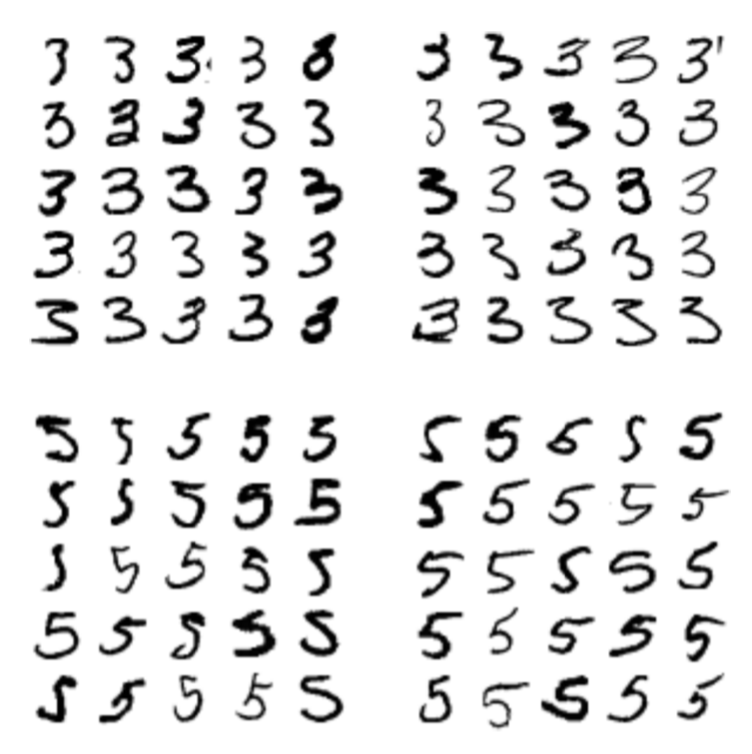 3 3 3 3 8 3 3 3 3 3'
3 3 3 3 3 3 3 3 3 3
3 3 3 3 3 3 3 3 3 3
3 3 3 3 3 3 3 3 3 3
3 3 3 3 3 3 3 3 3 3
5 5 5 5 5 5 5 5 5 5
5 5 5 5 5 5 5 5 5 5
5 5 5 5 5 5 5 5 5 5
5 5 5 5 5 5 5 5 5 5
5 5 5 5 5 5 5 5 5 5